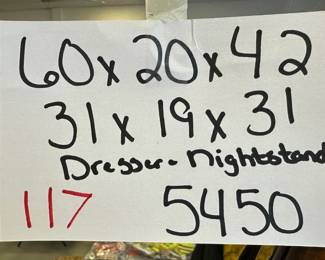 60 x 20 x 42
31 x 19 x 31
Dresser - Nightstand
117 5450